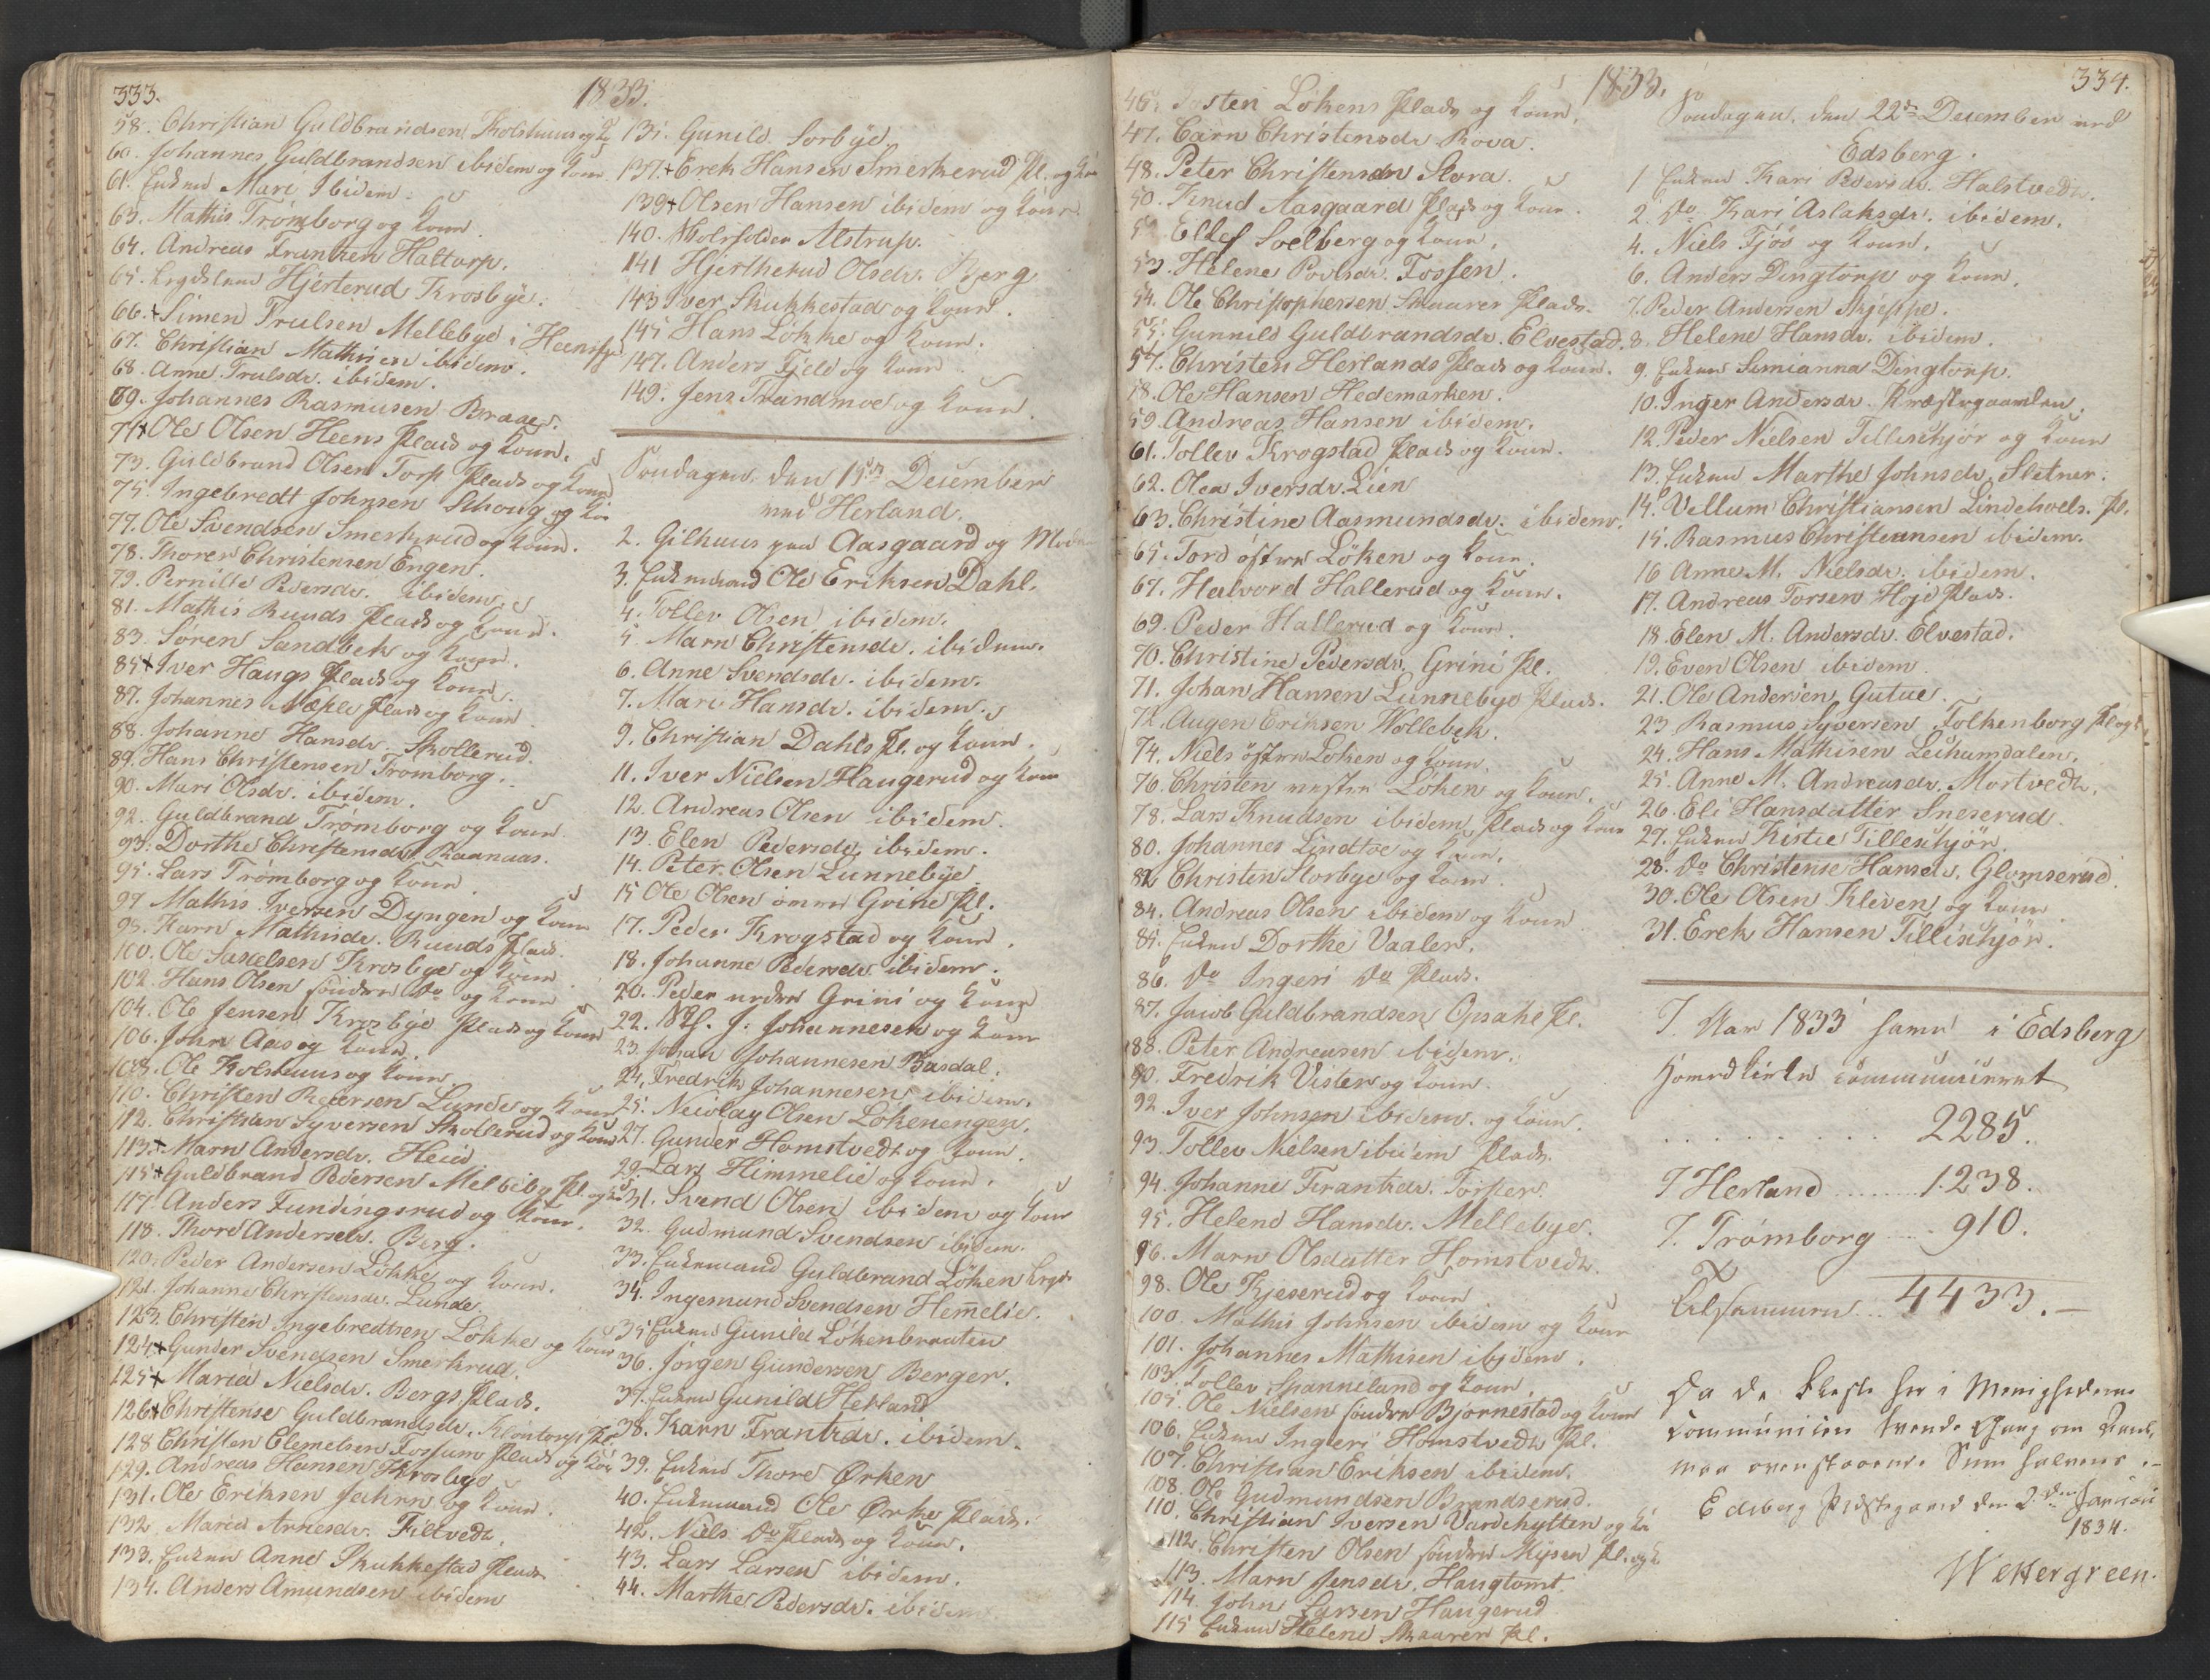 333.
1833.
58. Christian Guldbrandsen Kolshuus og K
60. Johannes Guldbrandsen ibidem og Kone
61. Enken Mari Ibidem.
63. Mathis Trömborg og Kone.
64. Andreas Frantzen Haltorp.
65. Hjerterud Krosbye.
66. + Simen Trulsen Mellebye i Heens
67. Christian Mathisen ibidem.
68. Anne Trulsdr. ibidem.
69. Johannes Rasmusen Braae.
71 + Ole Olsen Heens Plads og Kone.
73. Guldbrand Olsen Torp Plads og Kone
75. Ingebredt Johnsen Schoug og Ko
77. Ole Svendsen Smerkerud og Kone.
78. Thorer Christensen Engen.
79. Pernille Pedersdr. ibidem.
81. Mathis Ruuds Plads og Kone.
83. Sören Sandbek og Kone.
85 + Iver Haugs Plads og Kone.
87. Johannes Næple Plads og Kone
88. Johanne Hansdr. Skollerud.
89. Hans Christensen Tromborg.
90. Mari Olsdr. ibidem.
92. Guldbrand Trömborg og Kone
93. Dorthe Christensdr. Raanaas.
95. Lars Trömborg og Kone.
97 Mathis Iversen Dyngen og Kone
98. Karn Mathisdr. Ruuds Plads.
100. Ole Krosbye og Kone
102. Hans Olsen söndre Do og Kone
104. Ole Jensen Krosbye Plads og Kone
106. John Aas og Kone.
108. Ole Kolshuus og Kone
110. Christen Pedersen Lunde og Kone
112. Christian Syversen Skollerud og Kone
113. + Marn Andersdr. Heie
115 + Guldbrand Pedersen Melbibye Pl. og K
117. Anders Fundingsrud og Kone.
118. Thore Andersdr. Berg.
120. Peder Andersen Lökke og Kone.
121. Johanne Christensdr. Lunde.
123. Christen Ingebredtsen Lökke og Kone
124 + Gunder Svendsen Smerkrud.
125 + Maria Nielsdr. Bergs Plads.
126 + Christense Guldbrandsdr. Pl.
128 Christen Clemetsen Fossum Plads og Ko
129. Andreas Hansen Krosbye
131. Ole Eriksen Jahren og Kone.
132. Maria Arnesdr. Filtvedt.
133. Enken Anne Skukkestad Plads
134. Anders Amundsen ibidem
135. Gunild Sorbye
137. + Erek Hansen Smerkerud Pl. og Ko
139 + Olsen Hansen ibidem og Kone.
140. Alstrup.
141 Hjerthekud Olsdr. Berg
143 Iver Skukkestad og Kone.
145 Hans Lökke og Kone.
147. Anders Fjeld og Kone
149. Jens Trandmoe og Kone.
Söndagen den 15de December
ved Herland.
2. Gilhuus paa Aasgaard og Moder
3. Enkemand Ole Eriksen Dahl.
4. Tollev Olsen ibidem.
5. Marn Christensdr. ibidem.
6. Anne Svendsdr. ibidem.
7. Mari Hansdr. ibidem.
9. Christian Dahls Pl. og Kone.
11. Iver Nielsen Haugerud og Kone
12. Andreas Olsen ibidem.
13. Elen Pedersdr. ibidem.
14. Peter Olsen Lunnebye
15 Ole Olsen Grine Pl.
17. Peder Krogstad og Kone.
18. Johanne Pedersdr. ibidem.
20. Peder nedre Grini og Kone
22. J. Johannesen og Kone
23. Johan Johannesen Basdal.
24. Fredrik Johannesen ibidem.
25. Nicolay Olsen Lökenengen.
27. Gunder Homstvedt og Kone.
29. Lars Himmelie og Kone.
31. Svend Olsen ibidem og Kone
32. Gudmund Svendsen ibidem.
33. Enkemand Guldbrand Löken
34. Ingemund Svendsen Hemmelie.
35 Enken Gunild Lökenbraaten
36. Jörgen Gundersen Berger.
37. Enken Gunild Herland
38. Karn Frantzdr. ibidem.
39. Enken Thore Ørken
40. Enkemand Ole Ørke Plads.
42. Niels Do Plads og Kone.
43. Lars Larsen ibidem.
44. Marthe Pedersdr. ibidem
1833.
334.
46. Lökens Plads og Kone.
47. Carn Christensdr. Rova.
48. Peter Christensen Skora.
50. Knud Aasgaard Plads og Kone.
52 Ellef Soelberg og Kone.
53. Helene Povlsdr. Fossen.
54. Ole Christophersen Skaarer Plads.
55. Gunnild Guldbrandsdr. Elvestad.
57. Christen Herlands Plads og Kone.
58. Ole Hansen Hedemarken.
59 Andreas Hansen ibidem.
61. Tollev Krogstad Plads og Kone.
62. Olea Iversdr. Lien
63. Christine Aasmundsdr. ibidem.
65. Tord östre Löken og Kone.
67. Halvord Hallerud og Kone.
69. Peder Hallerud og Kone.
70. Christine Pedersdr. Grini Pl.
71. Johan Hansen Lunnebye Plads.
72. Augen Eriksen Wollebek.
74. Niels östre Löken og Kone.
76. Christen vestre Löken og Kone.
78. Lars Knudsen ibidem Plads og Kone
80. Johannes Lindtoe og Kone.
82 Christen Storbye og Kone.
84. Andreas Olsen ibidem og Kone
85. Enken Dorthe Vaaler.
86. Do Ingeri Do Plads.
87. Jacob Guldbrandsen Opsahl Pl.
88. Peter Andreasen ibidem.
90. Fredrik Vister og Kone.
92. Iver Johnsen ibidem og Kone.
93. Tollev Nielsen ibidem Plads.
94. Johanne Frantzdr. Torper.
95. Helene Hansdr. Mellebye.
96. Marn Olsdatter Homstvedt.
98. Ole Kjeserud og Kone
100 Mathis Johnsen ibidem og Kone
101. Johannes Mathisen ibidem.
103. Tollev Spanneland og Kone.
105. Ole Nielsen söndre Bjornestad og Kone
106. Enken Ingeri Homstvedt Pl.
107. Christian Eriksen ibidem.
108. Ole Gudmundsen Brandserud.
110. Christian Iversen Vardehytten og Ko
112. Christen Olsen söndre Mysen Pl. og K.
113. Marn Jensdr. Haugtomt
114. John Larsen Haugerud
115 Enken Helene Skaaren Pl.
Söndagen den 22de December ved
Edsberg.
1 Enken Kari Pedersdr. Halstvedt.
2. Do Kari Aslaksdr. ibidem.
4. Niels Fjös og Kone.
6. Anders Dingtorp og Kone.
7. Peder Andersen Skjeppe.
8. Helene Hansdr. ibidem.
9. Enken Simianna Dingtorp.
10. Inger Andersdr. Præstegaarden.
12. Peder Nielsen Tillerskjör og Kone
13. Enken Marthe Johnsdr. Sletner.
14. Vellum Christiansen Lindehoels. Pl.
15. Rasmus Christensen ibidem.
16 Anne M. Nielsdr. ibidem.
17. Andreas Torsen Höje Plads.
18. Elen M. Andersdr. Elvestad.
19. Even Olsen ibidem.
21. Ole Andersen Gutue.
23 Rasmus Syversen Folkenborg Pl og K
24. Hans Mathisen Lechumdalen.
25. Anne M. Andreasdr. Mortvedt.
26. Eli Hansdatter Sneserud.
27. Enken Kistie Tillerskjör.
28. Do Christense Hansdr. Glomserud.
30. Ole Olsen Kleven og Kone.
31. Erek Hansen Tillerskjör.
I Aar 1833 have i Edsberg
Hovedkirke communiceret
. . . . . . . . 2285.
I Herland ........ 1238.
I Trömborg .... 910.
Tilsammen .. 4433.-
Da de fleste her i Menighederne
communicere tvende Gang om Aaret,
maa ovenstaaende Sum halveres.-
Edsberg Præstegaard den 2den Januar
1834.
Wettergreen.